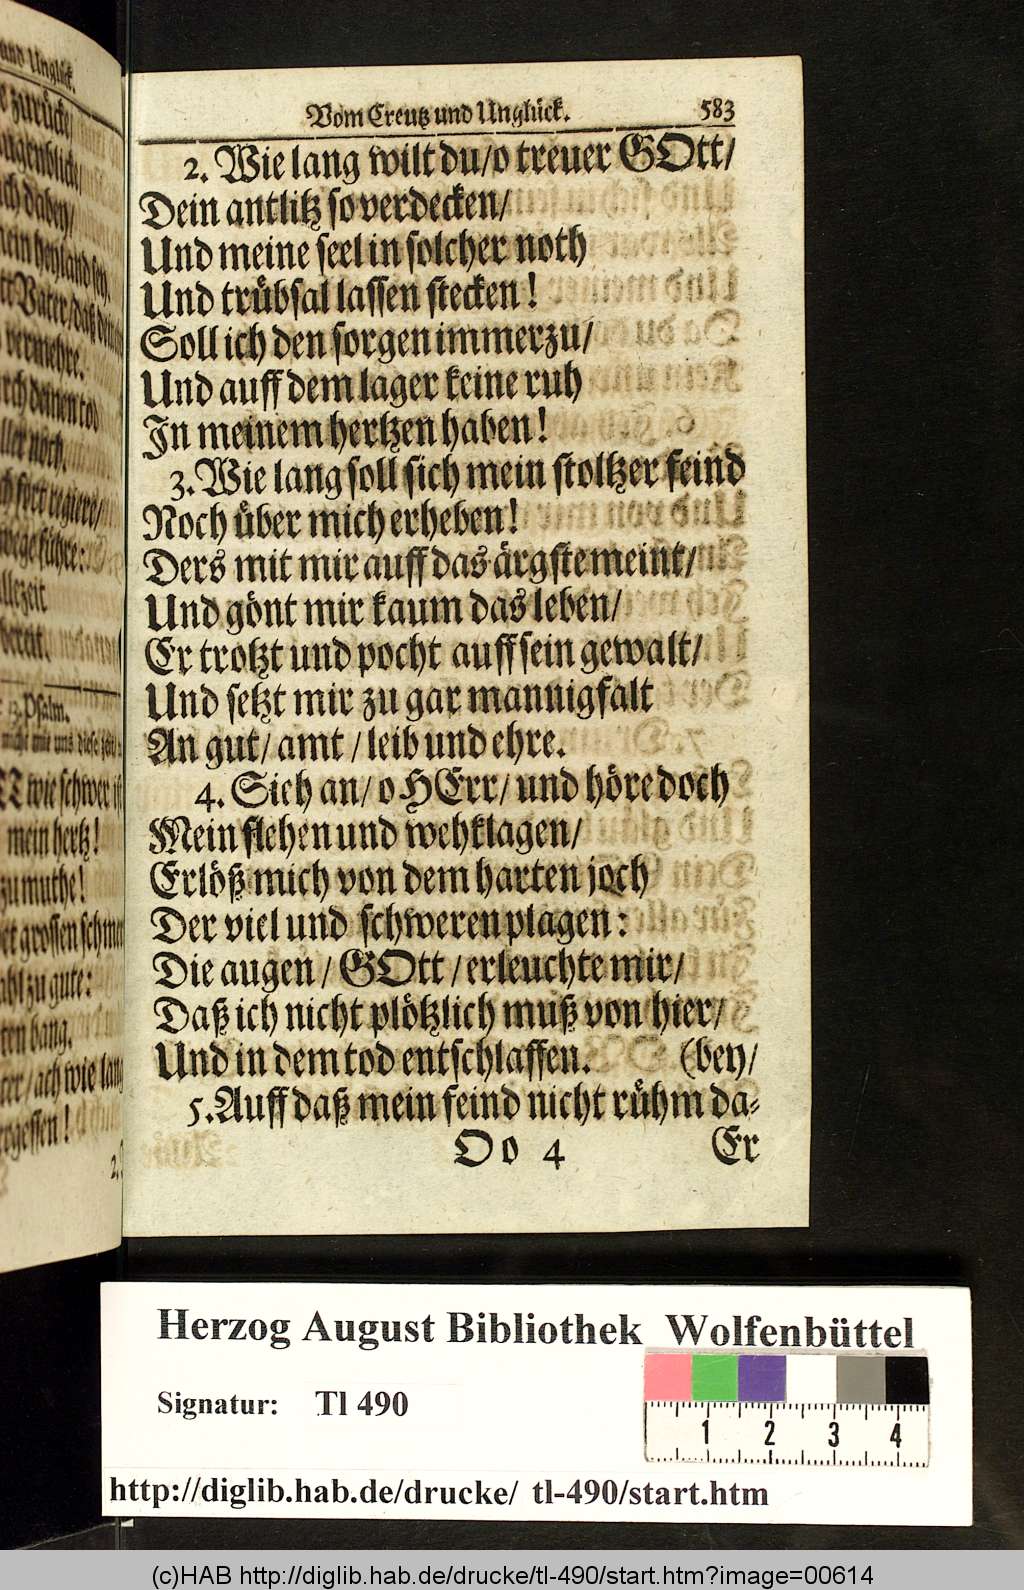 und Unglück.
zurücke/
augenblicke/
ich dabey/
mein heyland sey.
vermehre.
ller noch.
fort regiere/
wege führe:
llezeit
bereit.
13. Psalm.
wie schwer ist
mein hertz!
zu muthe!
zu gute:
bang.
ach wie lang
vergessen!
Vom Creutz und Unglück. 583
2. Wie lang wilt du/ o treuer GOtt/
Dein antlitz so verdecken/
Und meine seel in solcher noth
Und trübsal lassen stecken!
Soll ich den sorgen immerzu/
Und auff dem lager keine ruh
In meinem hertzen haben!
3. Wie lang soll sich mein stoltzer feind
Noch über mich erheben!
Ders mit mir auff das ärgste meint/
Und gönt mir kaum das leben/
Er trotzt und pocht auff sein gewalt/
Und setzt mir zu gar mannigfalt
An gut/ amt / leib und ehre.
4. Sieh an/ o HErr/ und höre doch
Mein flehen und wehklagen/
Erlöß mich von dem harten joch
Der viel und schweren plagen:
Die augen / GOtt / erleuchte mir/
Daß ich nicht plötzlich muß von hier/
Und in dem tod entschlaffen. (bey/
5. Auff daß mein feind nicht rühm da-
Oo 4 Er
Herzog August Bibliothek Wolfenbüttel
Signatur: Tl 490
1 2 3 4
http://diglib.hab.de/drucke/ tl-490/start.htm
(c)HAB http://diglib.hab.de/drucke/tl-490/start.htm?image=00614